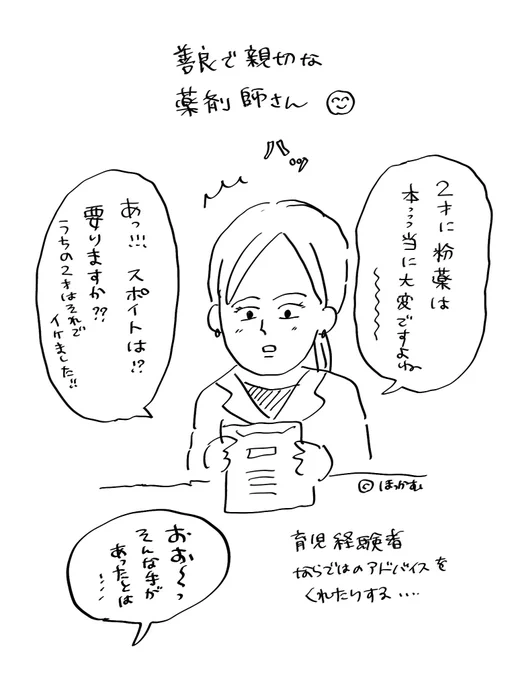 善良で親切な
薬剤師さん
ハッ
2才に粉薬は
本っっ当に大変ですよね
あっ!!! スポイトは!?
要りますか??
うちの2才はそれで
イケました!!
おお〜っ
そんな手が
あったとは
...
© ほっかむ
育児経験者
ならではのアドバイスを
くれたりする....